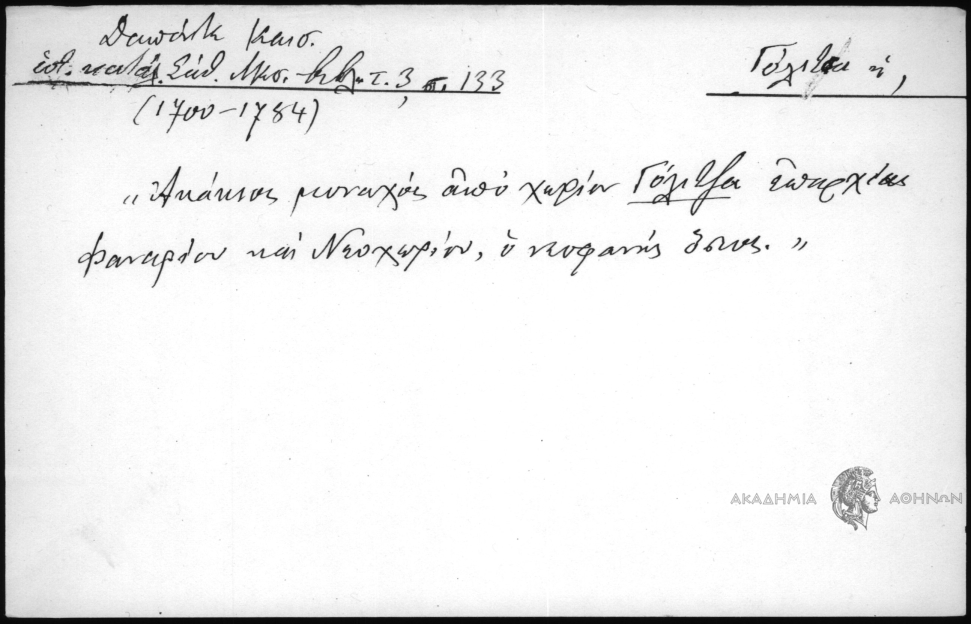 Δαπόντε Καισ.
ἱστ. κατάλ. Σάθ. Μεσ. Βιβλ. τ. 3, σ. 133
(1700-1784)
Γόλιτσα ἡ,
„Ἀκάκιος μοναχός ἀπό χωρίον Γόλιτζα ἐπαρχίας
Φαναρίου καί Νεοχωρίου, ὁ νεοφανής ὅσιος.”
ΑΚΑΔΗΜΙΑ ΑΘΗΝΩΝ